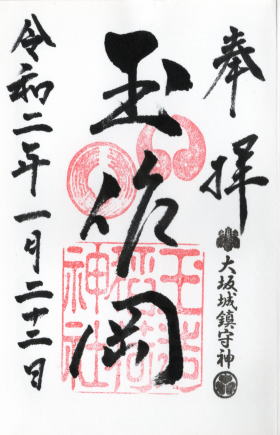 奉拝
大坂城鎮守神
玉作岡
玉造
稲荷
神社
令和二年一月二十二日